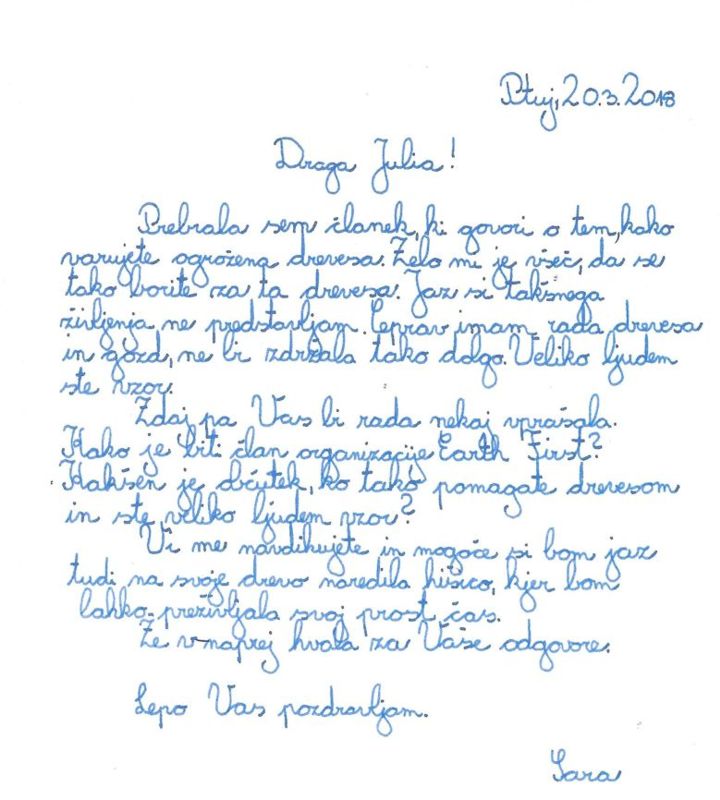 Ptuj, 20.3.2018
Draga Julia!
Prebrala sem članek, ki govori o tem, kako
varujete ogrožena drevesa. Zelo mi je všeč, da se
tako borite za ta drevesa. Jaz si takšnega
življenja ne predstavljam. Čeprav imam rada drevesa
in gozd, ne bi zdržala tako dolgo. Veliko ljudem
ste vzor.
Zdaj pa Vas bi rada nekaj vprašala.
Kako je biti član organizacije Earth First?
Kakšen je občutek, ko tako pomagate drevesom
in ste veliko ljudem vzor?
Vi me navdihujete in mogoče si bom jaz
tudi na svoje drevo naredila hišico, kjer bom
lahko preživljala svoj prost čas.
Že vnaprej hvala za Vaše odgovore.
Lepo Vas pozdravljam.
Sara